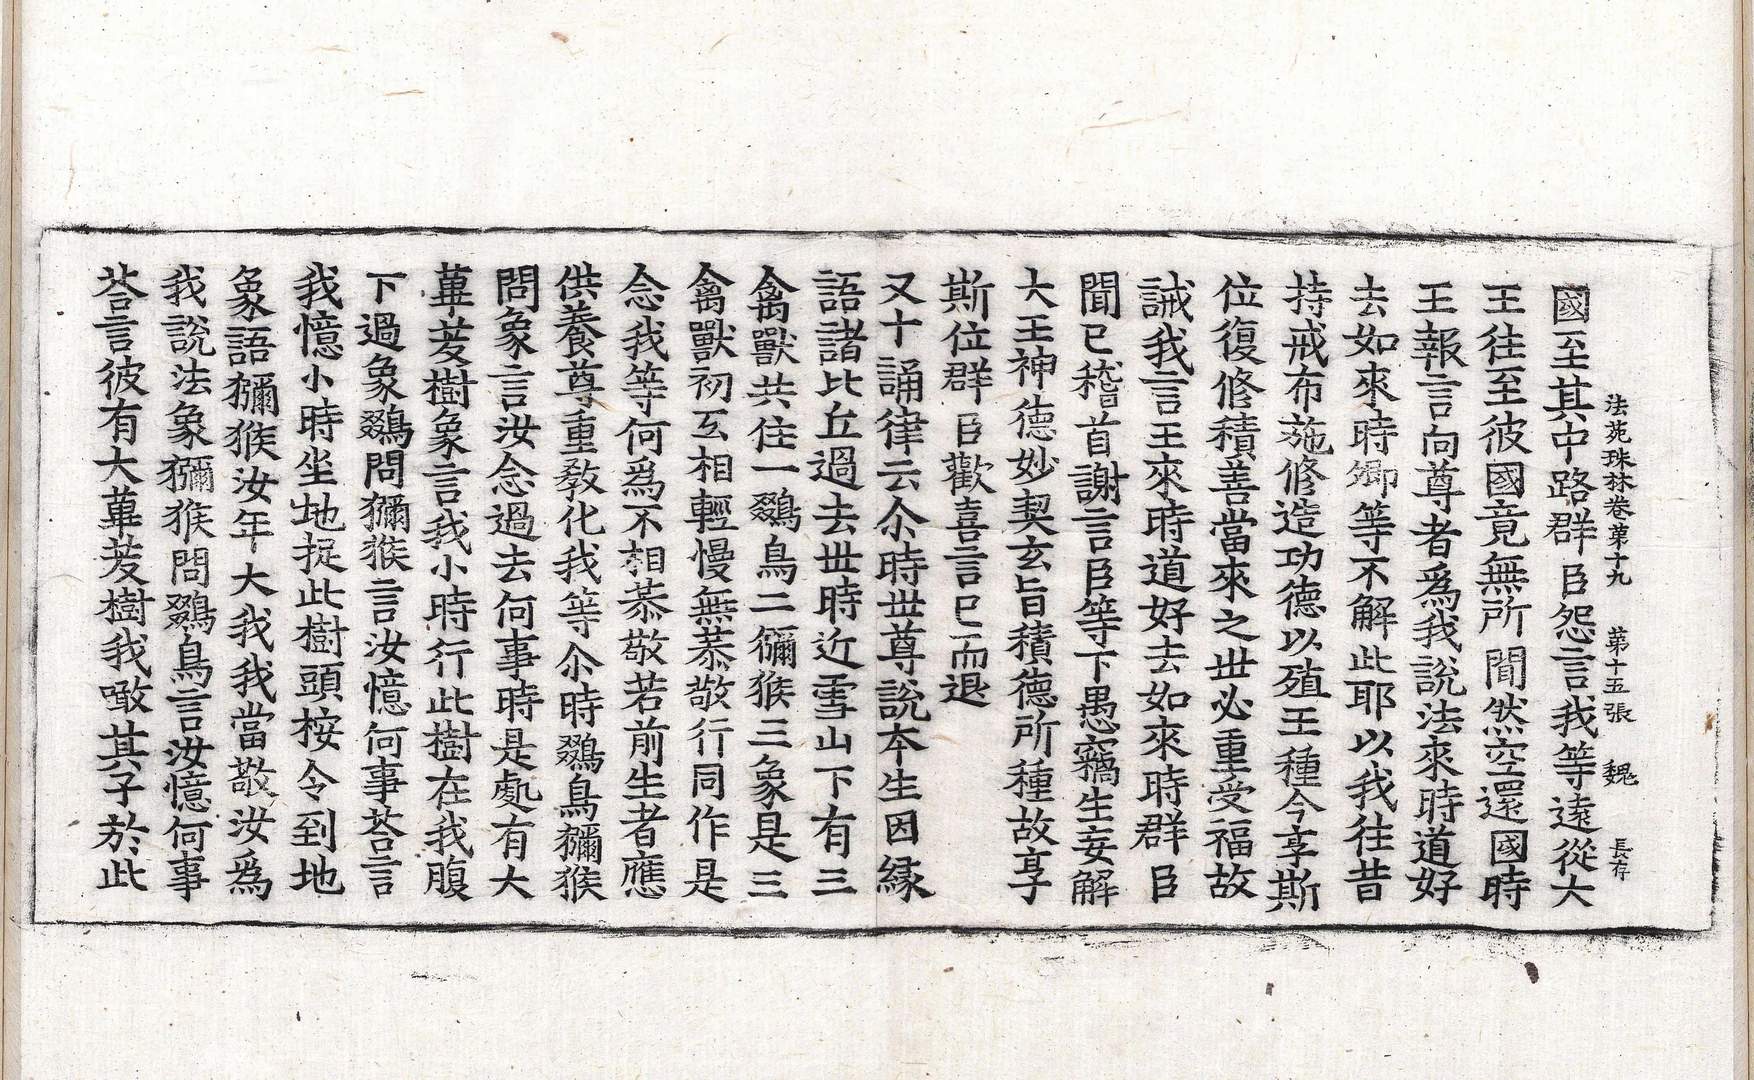 法苑珠林卷苐十九　苐十五張　魏　長存
國至其中路群臣怨言我等遠從大
王往至彼國竟無所聞然空還國時
王報言向尊者爲我說法來時道好
去如來時卿等不解此耶以我往昔
持戒布施修造功德以殖王種今享斯
位復修積善當來之丗必重受福故
誡我言王來時道好去如來時群臣
聞已稽首謝言臣等下愚竊生妄解
大王神德妙契玄旨積德所種故享
斯位群臣歡喜言已而退
又十誦律云尒時丗尊說本生因縁
語諸比丘過去丗時近雪山下有三
禽獸共住一鵽鳥二獼猴三象是三
禽獸初互相輕慢無恭敬行同作是
念我等何爲不相恭敬若前生者應
供養尊重敎化我等尒時鵽鳥獼猴
問象言汝念過去何事時是處有大
蓽茇樹象言我小時行此樹在我腹
下過象鵽問獼猴言汝憶何事荅言
我憶小時坐地捉此樹頭桉令到地
象語獼猴汝年大我我當敬汝爲
我說法象獼猴問鵽鳥言汝憶何事
荅言彼有大蓽茇樹我噉其子於此